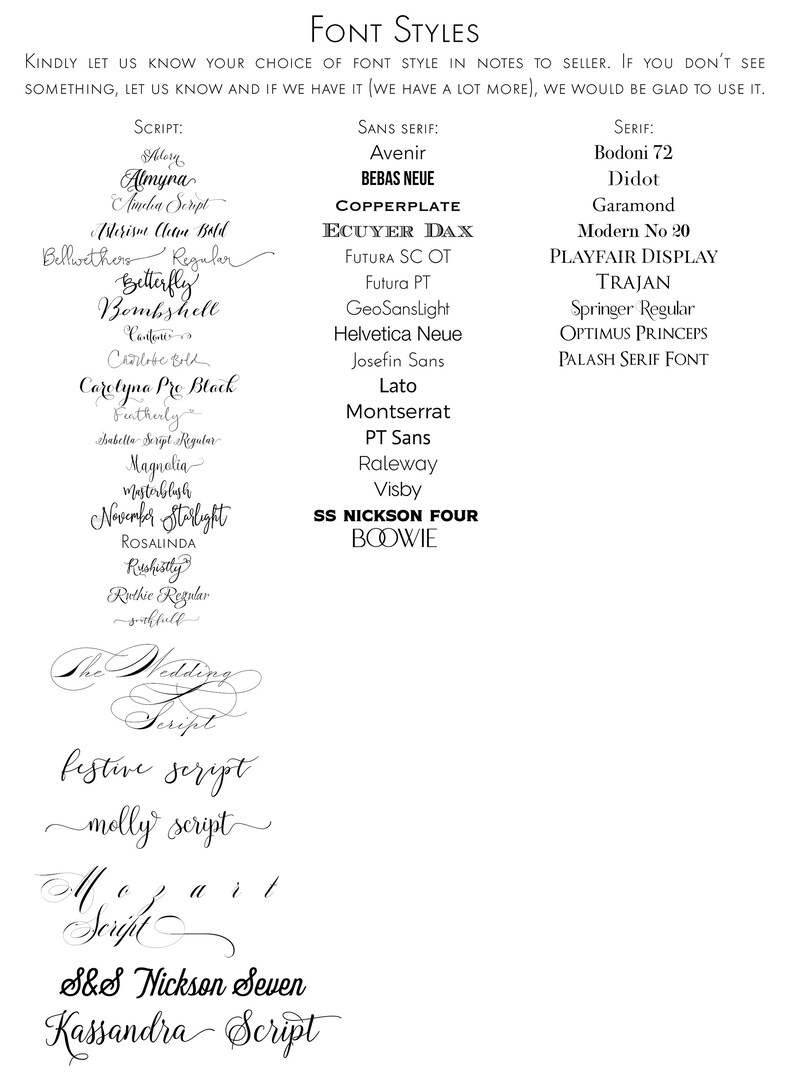 Font Styles
Kindly let us know your choice of font style in notes to seller. If you don't see
something, let us know and if we have it (we have a lot more), we would be glad to use it.
Script:
Adorn
Almyra
Amelia Script
Asterism Clean Bold
Bellwethers Regular
Betterfly
Bombshell
Cantoni
Charlotte Bold
Carolyna Pro Black
Featherly
Isabella Script Regular
Magnolia
Masterblush
November Starlight
Rosalinda
Rushistly
Ruthie Regular
southfield
The Wedding
Script
festive script
molly script
Mozart
Script
S&S Nickson Seven
Kassandra Script
Sans serif:
Avenir
BEBAS NEUE
Copperplate
Ecuyer Dax
Futura SC OT
Futura PT
GeoSansLight
Helvetica Neue
Josefin Sans
Lato
Montserrat
PT Sans
Raleway
Visby
SS NICKSON FOUR
BOOWIE
Serif:
Bodoni 72
Didot
Garamond
Modern No 20
Playfair Display
Trajan
Springer Regular
Optimus Princeps
Palash Serif Font